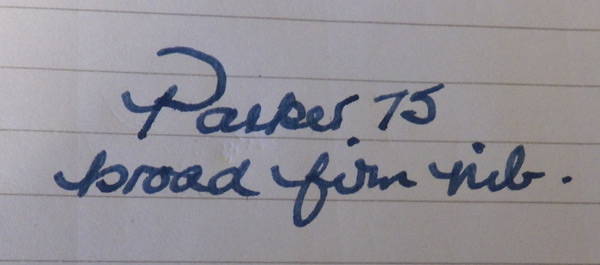 Parker 75
broad firm nib.